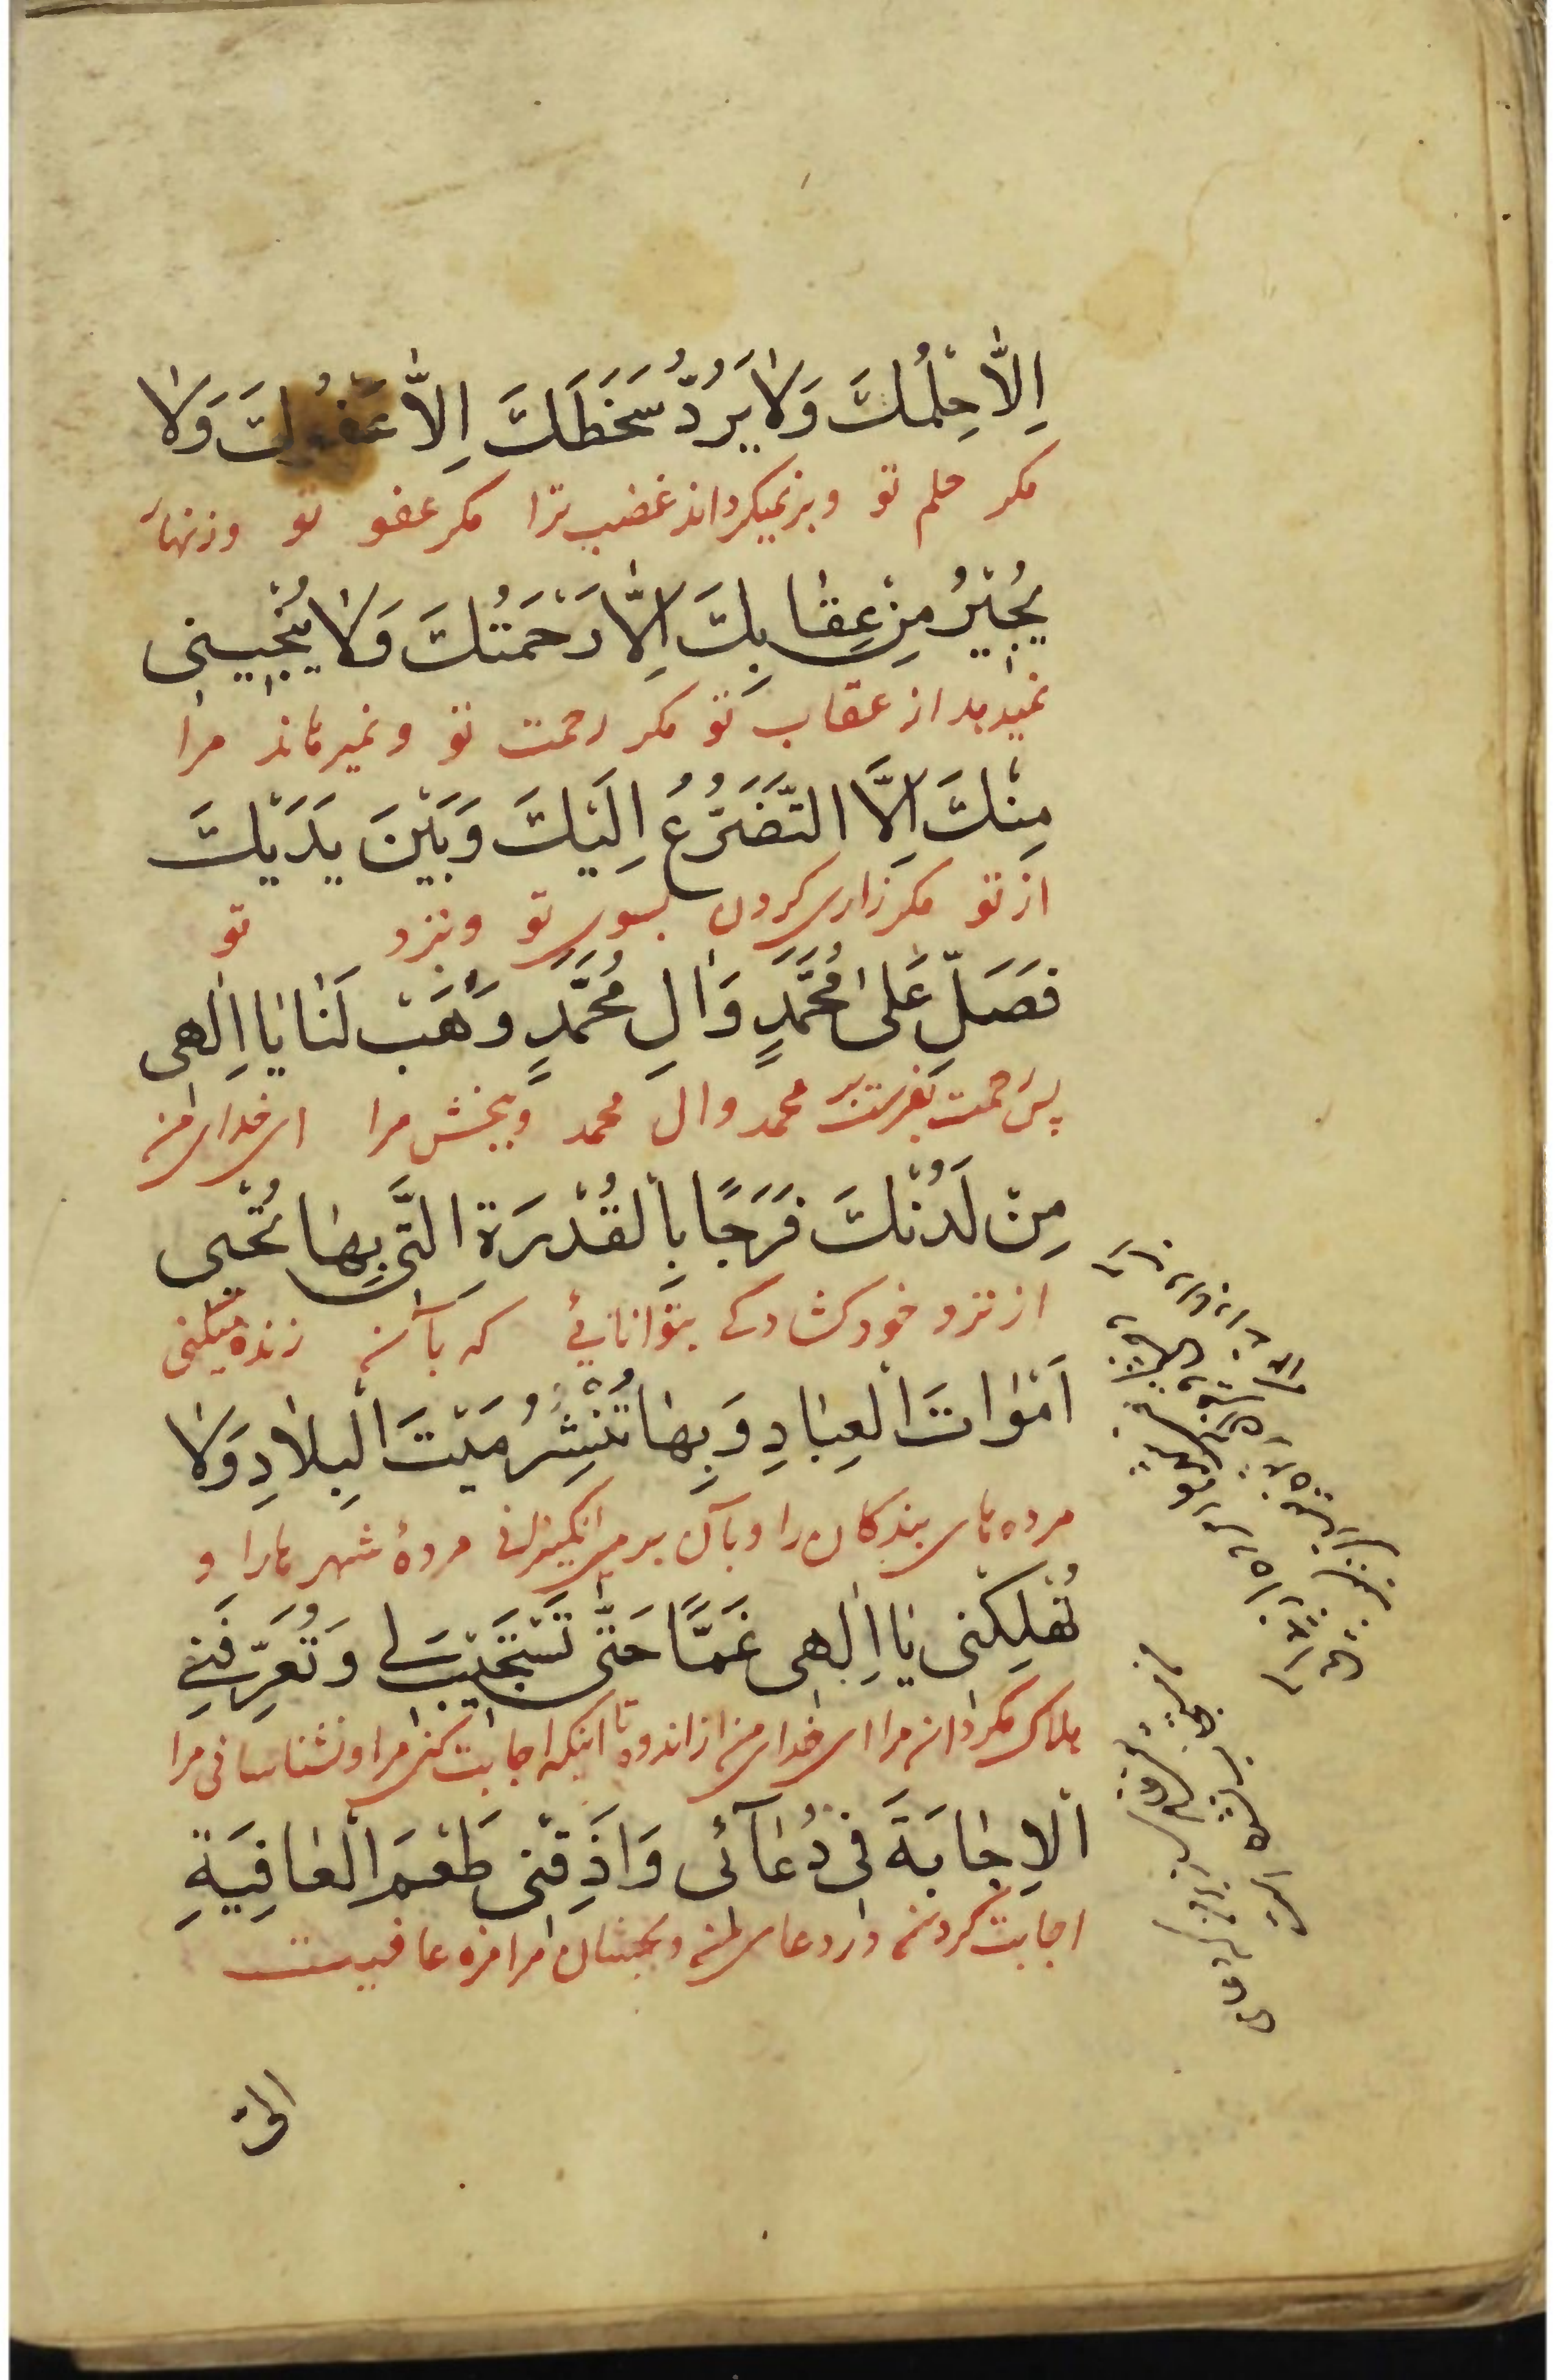 اِلّٰا حِلْمُكَ وَلٰا يَرُدُّ سَخَطَكَ اِلّٰا عَفْوُكَ وَلٰا
مكر حلم تو وبرنميكرداند غضب ترا مكر عفو تو وزنهار
يُجيْرُ مِنْ عِقٰابِكَ اِلّٰا رَحْمَتُكَ وَلٰا يُنْجينى
نميدهد از عقاب تو مكر رحمت تو ونميرهاند مرا
مِنْكَ اِلَّا التَّضَرُّعُ اِلَيْكَ وَبَيْنَ يَدَيْكَ
از تو مكر زارى كردن بسوى تو وبنزد تو
فَصَلِّ عَلىٰ مُحَمَّدٍ وَاٰلِ مُحَمَّدٍ وَهَبْ لَنٰا يٰا اِلٰهى
پس رحمت بفرست بر محمد وال محمد وببخش مرا اى خداى من
مِنْ لَدُنْكَ فَرَجًا بِالْقُدْرَةِ الَّتى بِهٰا تُحْيى
از نزد خود كشادكى بتوانائى كه بآن زنده ميكنى
اَمْوٰاتَ الْعِبٰادِ وَبِهٰا تُنْشِرُ مَيْتَ الْبِلٰادِ وَلٰا
مرده هاى بندكان را وبآن برمى انكيزانى مردهٔ شهرها را و
تُهْلِكْنى يٰا اِلٰهى غَمًّا حَتّٰى تَسْتَجيْبَ لى وَتُعَرِّفَنِى
هلاك مكردان مرا اى خداى من از اندوه تا اينكه اجابت كنى مرا وبشناسانى مرا
الْاِجٰابَةَ فى دُعٰآئى وَاَذِقْنى طَعْمَ الْعٰافِيَةِ
اجابت كردن در دعاى من وبچشان مرا مزه عافيت
الىٰ